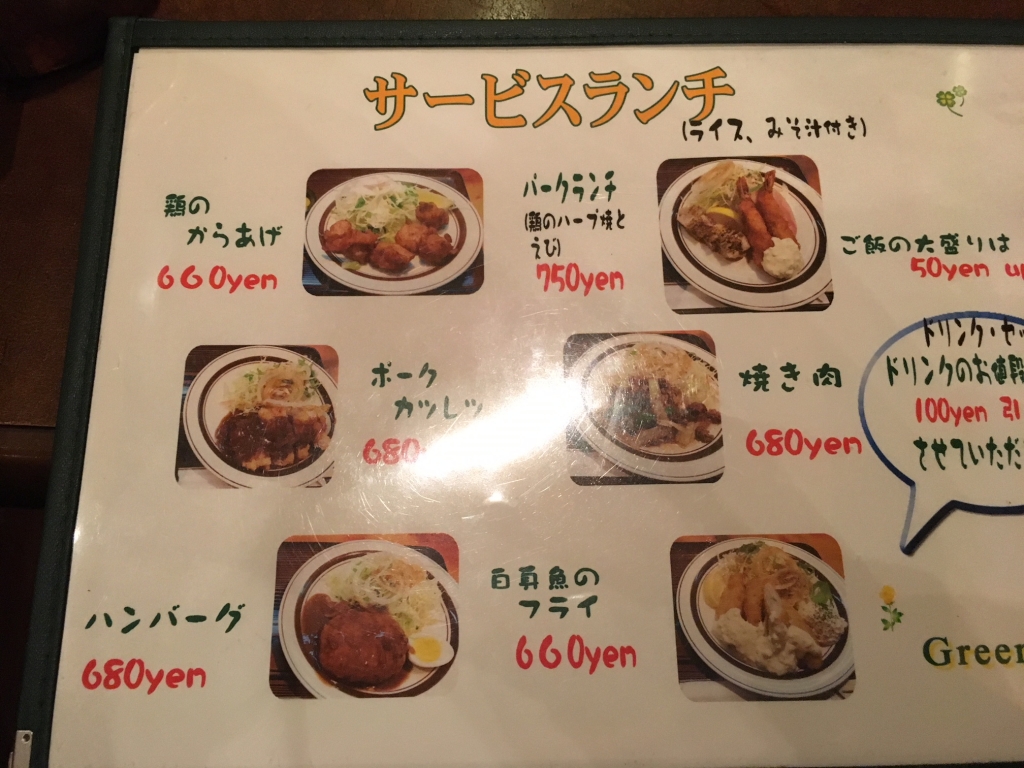 サービスランチ
(ライス、みそ汁付き)
鶏の
からあげ
660yen
パークランチ
(鶏のハーブ焼と
えび)
750yen
ご飯の大盛りは
50yen up
ポーク
カツレツ
680
焼き肉
680yen
ドリンク・セッ
ドリンクのお値段
100yen 引
させていただ
ハンバーグ
680yen
白身魚の
フライ
660yen
Green